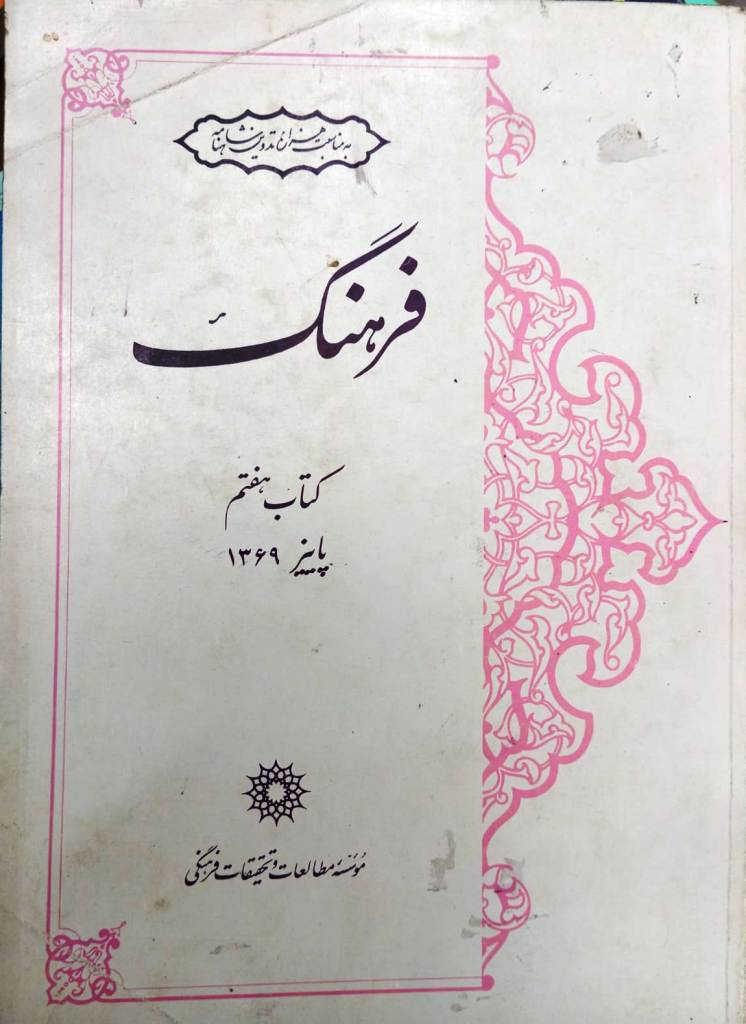 به مناسبت هزارهٔ تدوین شاهنامه
فرهنگ
کتاب هفتم
پاییز ۱۳۶۹
مؤسسهٔ مطالعات و تحقیقات فرهنگی